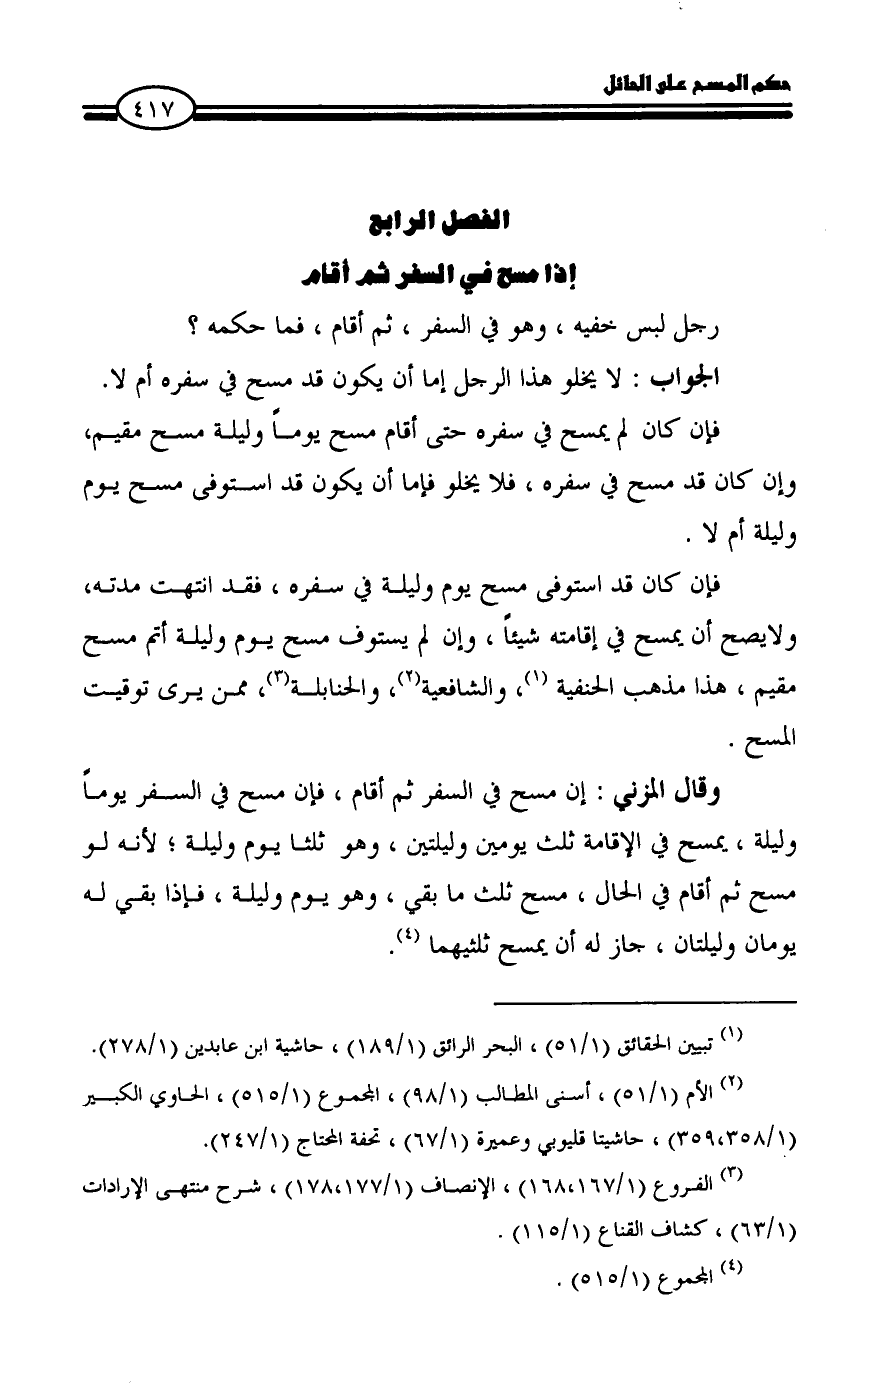 حكم المسح على الحائل
٤١٧
الفصل الرابع
إذا مسح في السفر ثم أقام
رجل لبس خفيه ، وهو في السفر ، ثم أقام ، فما حكمه ؟
الجواب : لا يخلو هذا الرجل إما أن يكون قد مسح في سفره أم لا.
فإن كان لم يمسح في سفره حتى أقام مسح يوماً وليلة مسح مقيم،
وإن كان قد مسح في سفره ، فلا يخلو فإما أن يكون قد استوفى مسح يوم
وليلة أم لا .
فإن كان قد استوفى مسح يوم وليلة في سفره ، فقد انتهت مدته،
ولايصح أن يمسح في إقامته شيئاً ، وإن لم يستوف مسح يوم وليلة أتم مسح
مقيم ، هذا مذهب الحنفية (١)، والشافعية(٢)، والحنابلة(٣)، ممن يرى توقيت
المسح .
وقال المزني : إن مسح في السفر ثم أقام ، فإن مسح في السفر يوماً
وليلة ، يمسح في الإقامة ثلث يومين وليلتين ، وهو ثلثا يوم وليلة ؛ لأنه لو
مسح ثم أقام في الحال ، مسح ثلث ما بقي ، وهو يوم وليلة ، فإذا بقي له
يومان وليلتان ، جاز له أن يمسح ثلثيهما (٤).
(١) تبيين الحقائق (٥١/١) ، البحر الرائق (١٨٩/١) ، حاشية ابن عابدين (٢٧٨/١).
(٢) الأم (٥١/١) ، أسنى المطالب (٩٨/١) ، المجموع (٥١٥/١) ، الحاوي الكبير
(٣٥٩،٣٥٨/١) ، حاشيتا قليوبي وعميرة (٦٧/١) ، تحفة المحتاج (٢٤٧/١).
(٣) الفروع (١٦٨،١٦٧/١) ، الإنصاف (١٧٨،١٧٧/١) ، شرح منتهى الإرادات
(٦٣/١) ، كشاف القناع (١١٥/١) .
(٤) المجموع (٥١٥/١) .